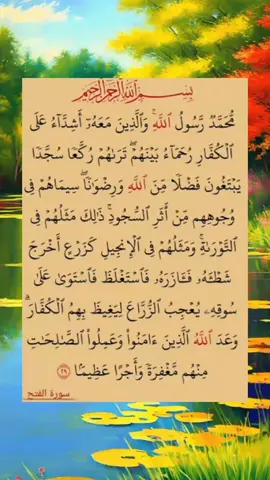 بسم الله الرحمن الرحيم
مُّحَمَّدٌ رَّسُولُ ٱللَّهِ ۚ وَٱلَّذِينَ مَعَهُۥٓ أَشِدَّآءُ عَلَى
ٱلْكُفَّارِ رُحَمَآءُ بَيْنَهُمْ ۖ تَرَىٰهُمْ رُكَّعًا سُجَّدًا
يَبْتَغُونَ فَضْلًا مِّنَ ٱللَّهِ وَرِضْوَٰنًا ۖ سِيمَاهُمْ فِى
وُجُوهِهِم مِّنْ أَثَرِ ٱلسُّجُودِ ۚ ذَٰلِكَ مَثَلُهُمْ فِى
ٱلتَّوْرَىٰةِ ۚ وَمَثَلُهُمْ فِى ٱلْإِنجِيلِ كَزَرْعٍ أَخْرَجَ
شَطْـَٔهُۥ فَـَٔازَرَهُۥ فَٱسْتَغْلَظَ فَٱسْتَوَىٰ عَلَىٰ
سُوقِهِۦ يُعْجِبُ ٱلزُّرَّاعَ لِيَغِيظَ بِهِمُ ٱلْكُفَّارَ ۗ
وَعَدَ ٱللَّهُ ٱلَّذِينَ ءَامَنُوا۟ وَعَمِلُوا۟ ٱلصَّٰلِحَٰتِ
مِنْهُم مَّغْفِرَةً وَأَجْرًا عَظِيمًۢا ٢٩
سورة الفتح